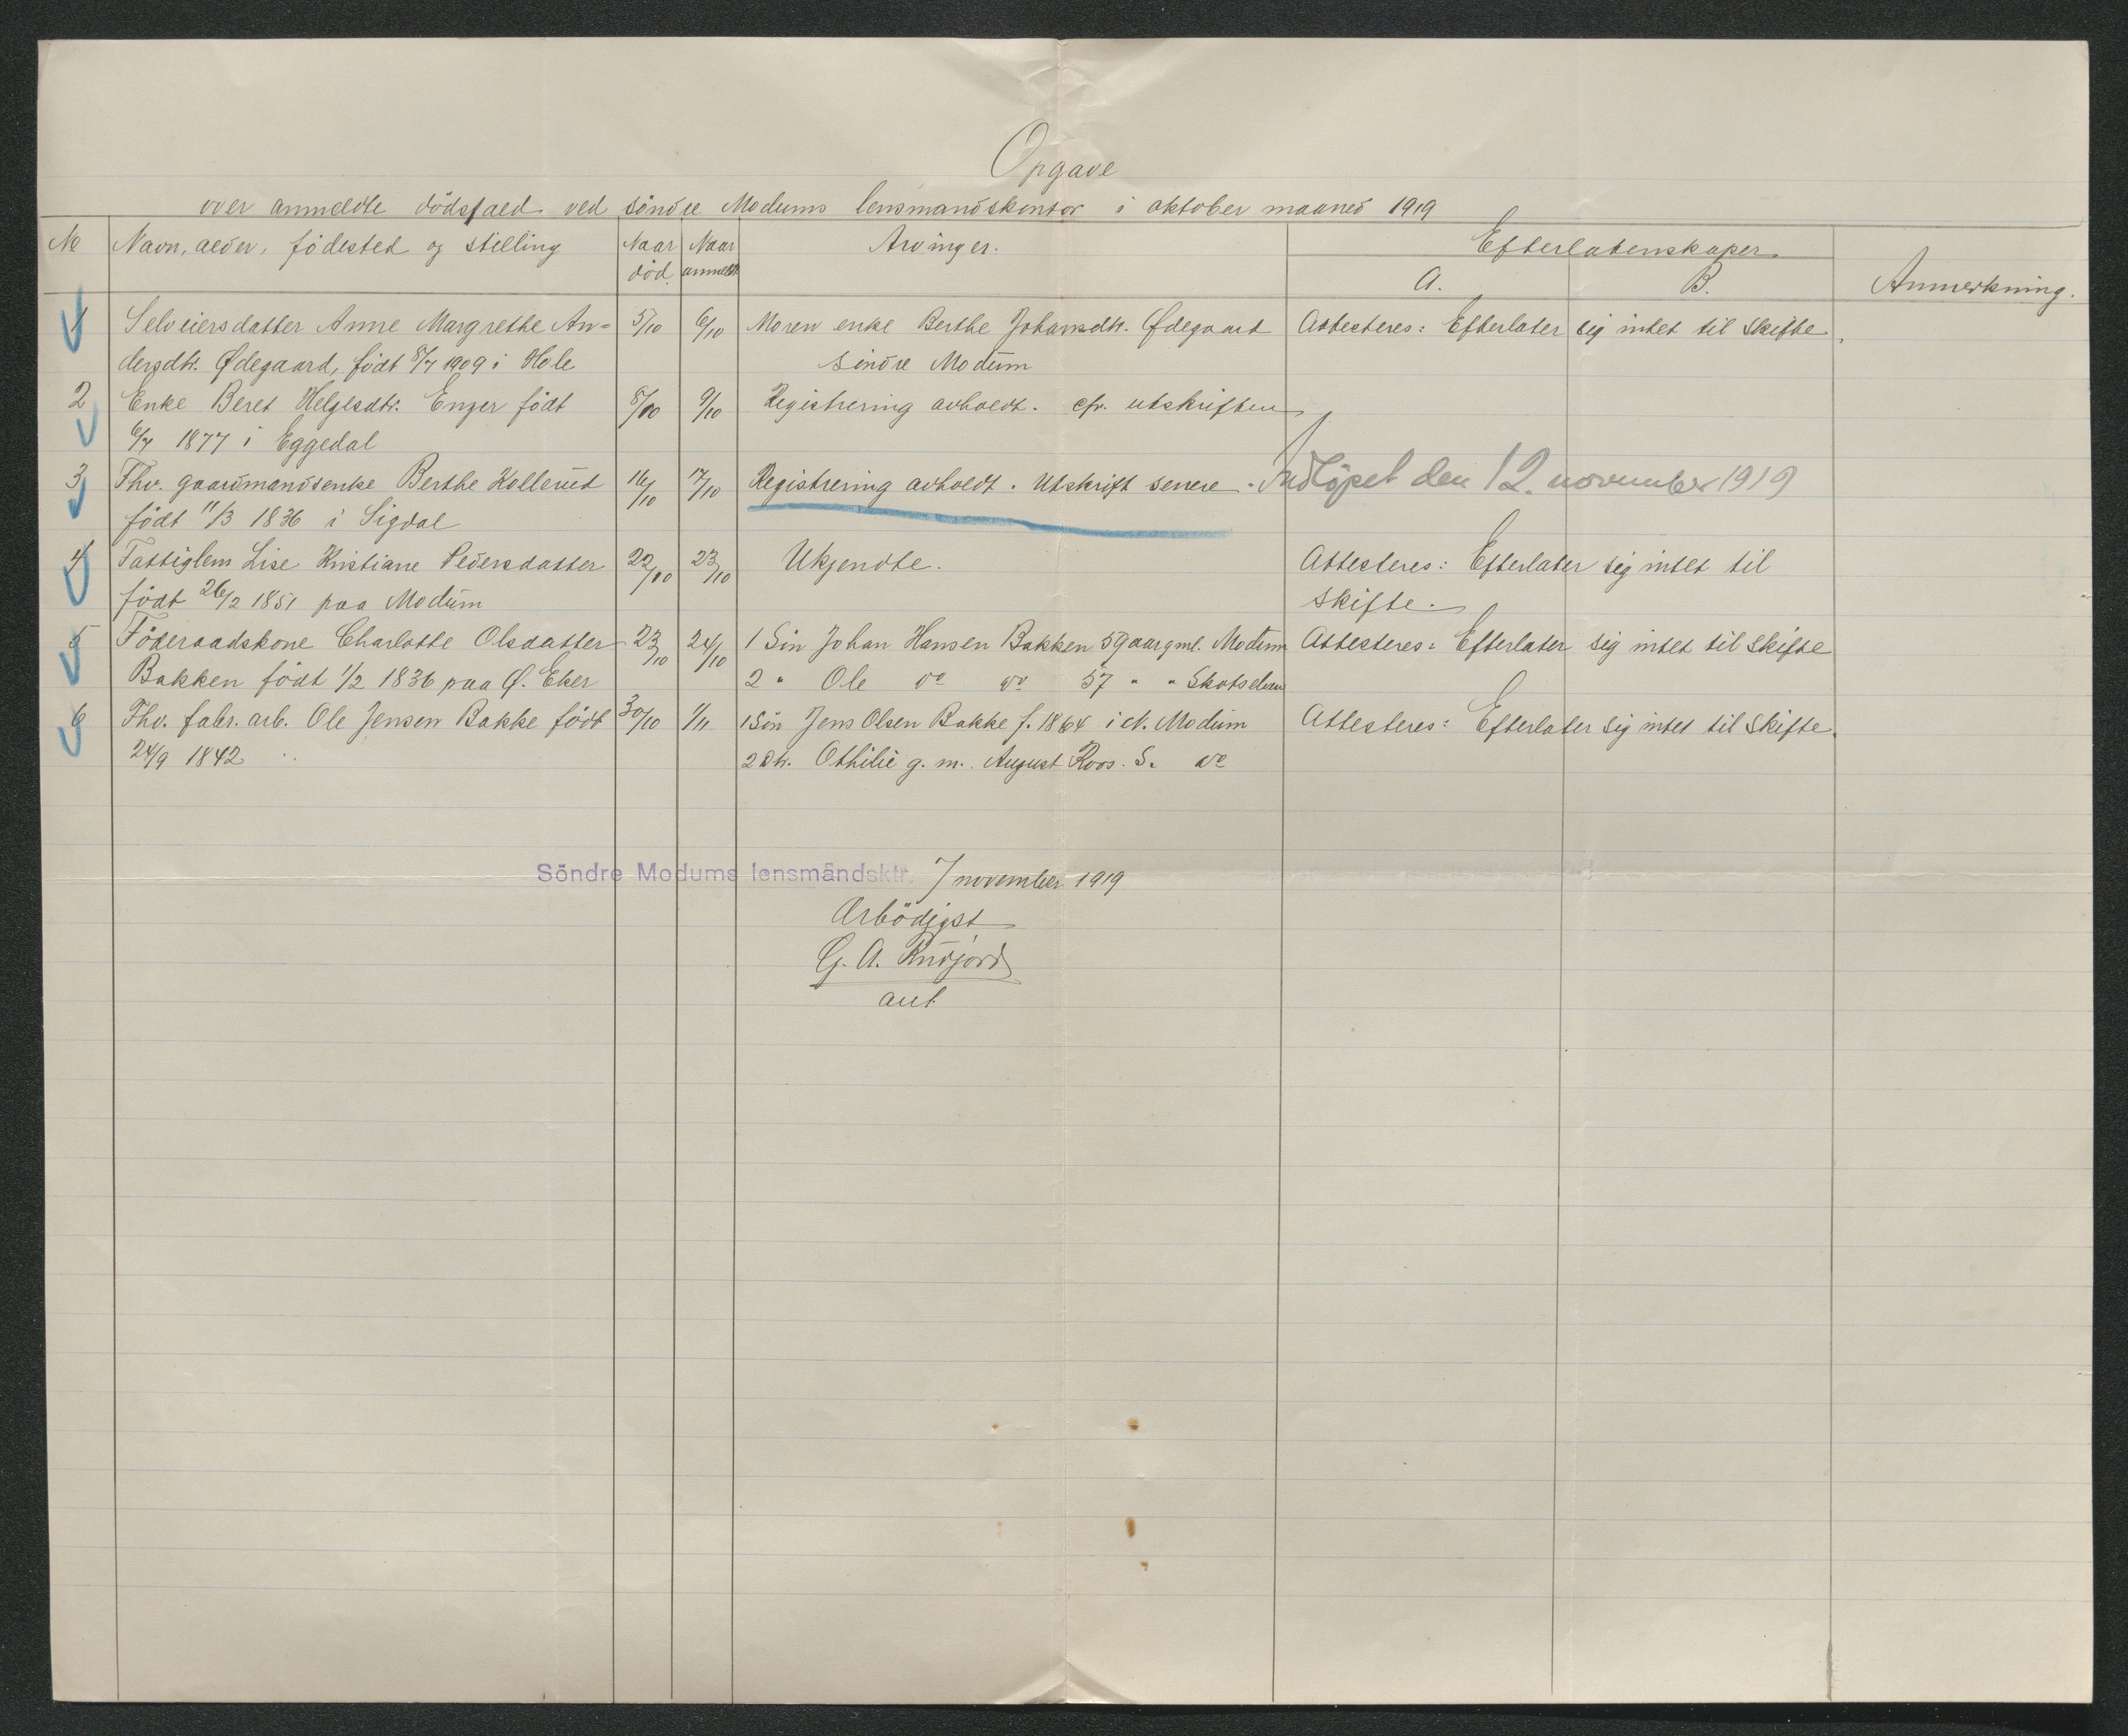 Opgave
over anmeldte dödsfald ved söndre Modums lensmandskontor i oktober maaned 1919
No Navn, alder, födested og stilling Naar död. Naar anmeldt Arvinger. Efterladenskaper A. B. Anmerkning.
1 Selveiersdatter Anne Margrethe An= 5/10 6/10 Moren enke Berthe Johansdtr. Ødegaard Attesteres: Efterlater sig intet til skifte.
dersdtr. Ødegaard, födt 8/7 1909 i Hole söndre Modum
2 Enke Beret Helgesdtr. Enger födt 8/10 9/10 Registrering avholdt. cfr. utskriften
6/7 1877 i Eggedal
3 Fhv. gaardmandsenke Berthe Kollerud 16/10 17/10 Registrering avholdt. Utskrift senere. Indlöpet den 12. november 1919
födt 11/3 1836 i Sigdal
4 Fattiglem Lise Kristiane Pedersdatter 22/10 23/10 Ukjendte. Attesteres: Efterlater sig intet til
födt 26/2 1851 paa Modum skifte.
5 Föderaadskone Charlotte Olsdatter 23/10 24/10 1 Sön Johan Hansen Bakken 59 aar gml. Modum Attesteres: Efterlater sig intet til skifte
Bakken födt 1/2 1836 paa Ø. Eker 2 " Ole do do 57 " " Skotselven
6 Fhv. fabr. arb. Ole Jensen Bakke födt 30/10 1/11 1 Sön Jens Olsen Bakke f. 1864 i N. Modum Attesteres: Efterlater sig intet til skifte.
24/9 1842 2 Dtr. Othilie g. m. August Roos. S. do
Söndre Modums lensmandsktr. 7 november 1919
Ærbödigst
G. A. Rudjord
aut.